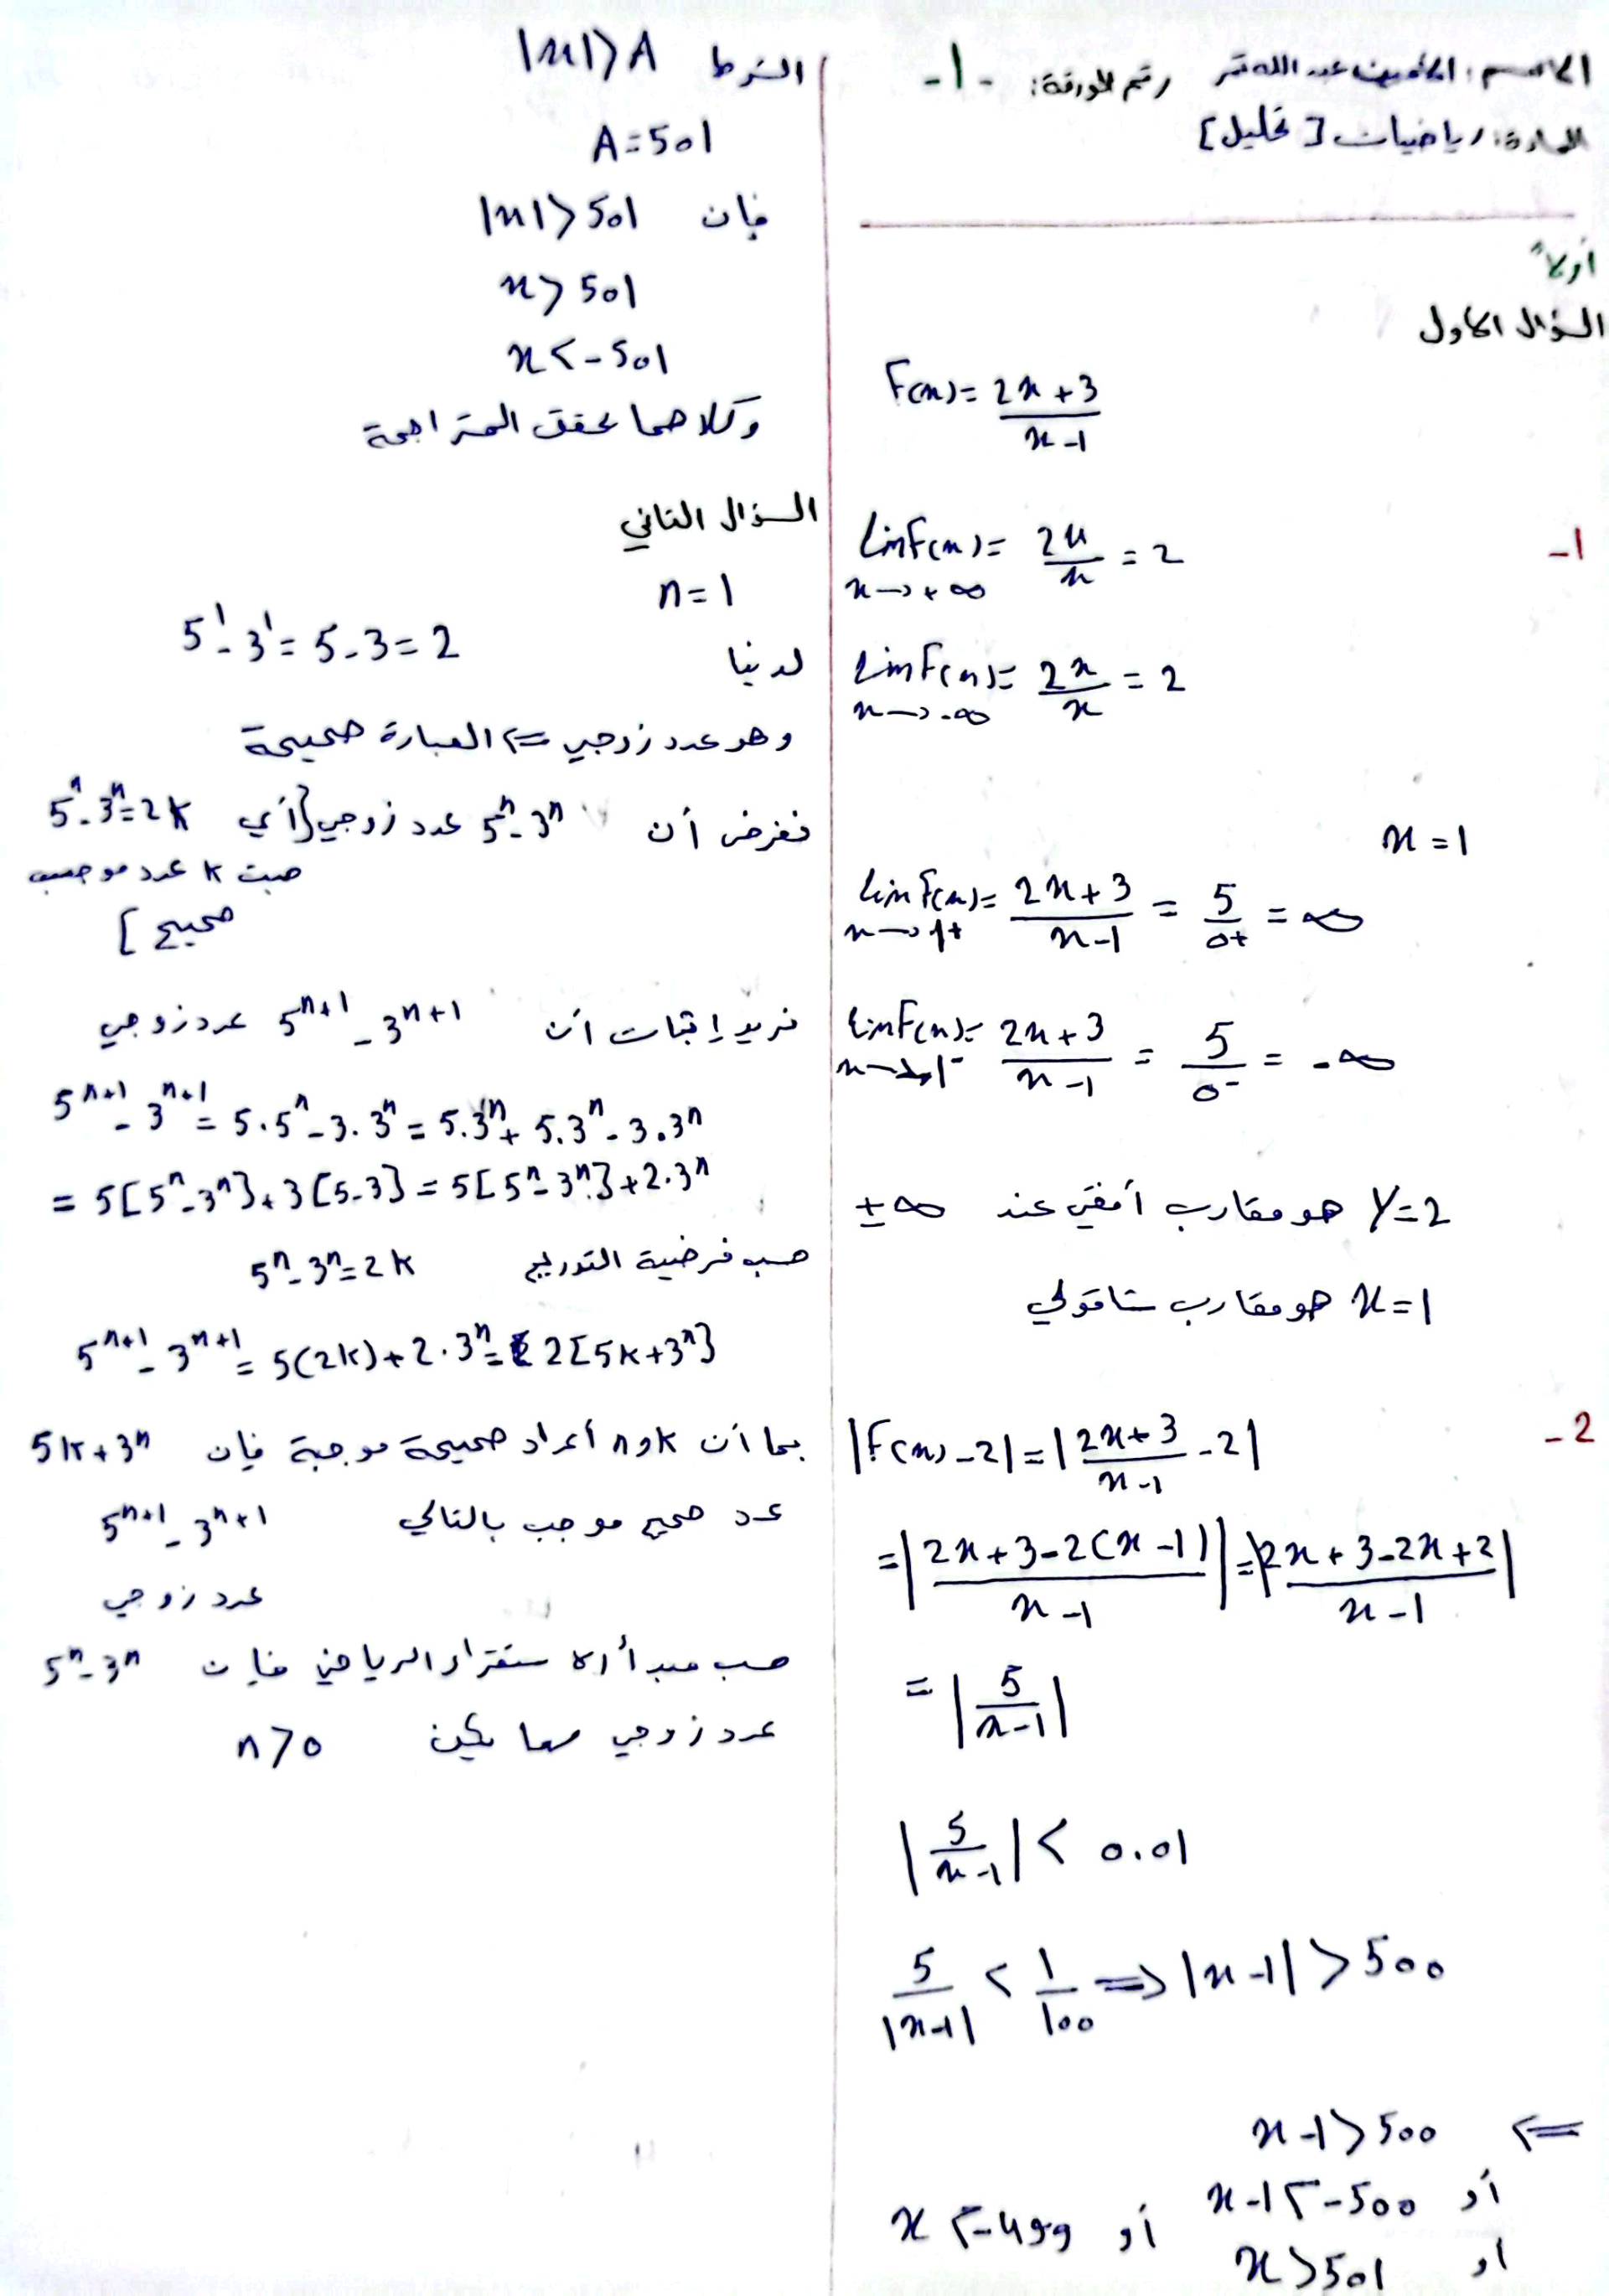 الاسم: الأمين عبد الله تمر رقم الورقة: -1-
المادة: رياضيات [تحليل]
أولاً
السؤال الأول
F(x) = (2x+3)/(x-1)
1-
lim F(x) = 2x/x = 2
x→+∞
lim F(x) = 2x/x = 2
x→-∞
x = 1
lim F(x) = (2x+3)/(x-1) = 5/0+ = ∞
x→1+
lim F(x) = (2x+3)/(x-1) = 5/0- = -∞
x→1-
y=2 هو مقارب أفقي عند ±∞
x=1 هو مقارب شاقولي
2-
|F(x)-2| = |(2x+3)/(x-1) - 2|
= |(2x+3-2(x-1))/(x-1)| = |(2x+3-2x+2)/(x-1)|
= |5/(x-1)|
|5/(x-1)| < 0.01
5/|x-1| < 1/100 ⇒ |x-1| > 500
⇐ x-1 > 500
أو x-1 < -500
او x > 501 أو x < -499
الشرط |x| > A
A = 501
فإن |x| > 501
x > 501
x < -501
وكلاهما يحقق المتراجحة
السؤال الثاني
n = 1
لدينا 5¹ - 3¹ = 5 - 3 = 2
وهو عدد زوجي ⇐ العبارة صحيحة
نفرض أن 5ⁿ - 3ⁿ عدد زوجي [أي 5ⁿ - 3ⁿ = 2k
حيث k عدد موجب
صحيح ]
نريد إثبات أن 5ⁿ⁺¹ - 3ⁿ⁺¹ عدد زوجي
5ⁿ⁺¹ - 3ⁿ⁺¹ = 5.5ⁿ - 3.3ⁿ = 5.3ⁿ + 5.3ⁿ - 3.3ⁿ
= 5[5ⁿ - 3ⁿ] + 3[5-3] = 5[5ⁿ - 3ⁿ] + 2.3ⁿ
حسب فرضية التدريج 5ⁿ - 3ⁿ = 2k
5ⁿ⁺¹ - 3ⁿ⁺¹ = 5(2k) + 2.3ⁿ = 2[5k + 3ⁿ]
بما أن k و n أعداد صحيحة موجبة فإن 5k + 3ⁿ
عدد صحيح موجب بالتالي 5ⁿ⁺¹ - 3ⁿ⁺¹
عدد زوجي
حسب مبدأ الاستقراء الرياضي فإن 5ⁿ - 3ⁿ
عدد زوجي مهما يكن n > 0